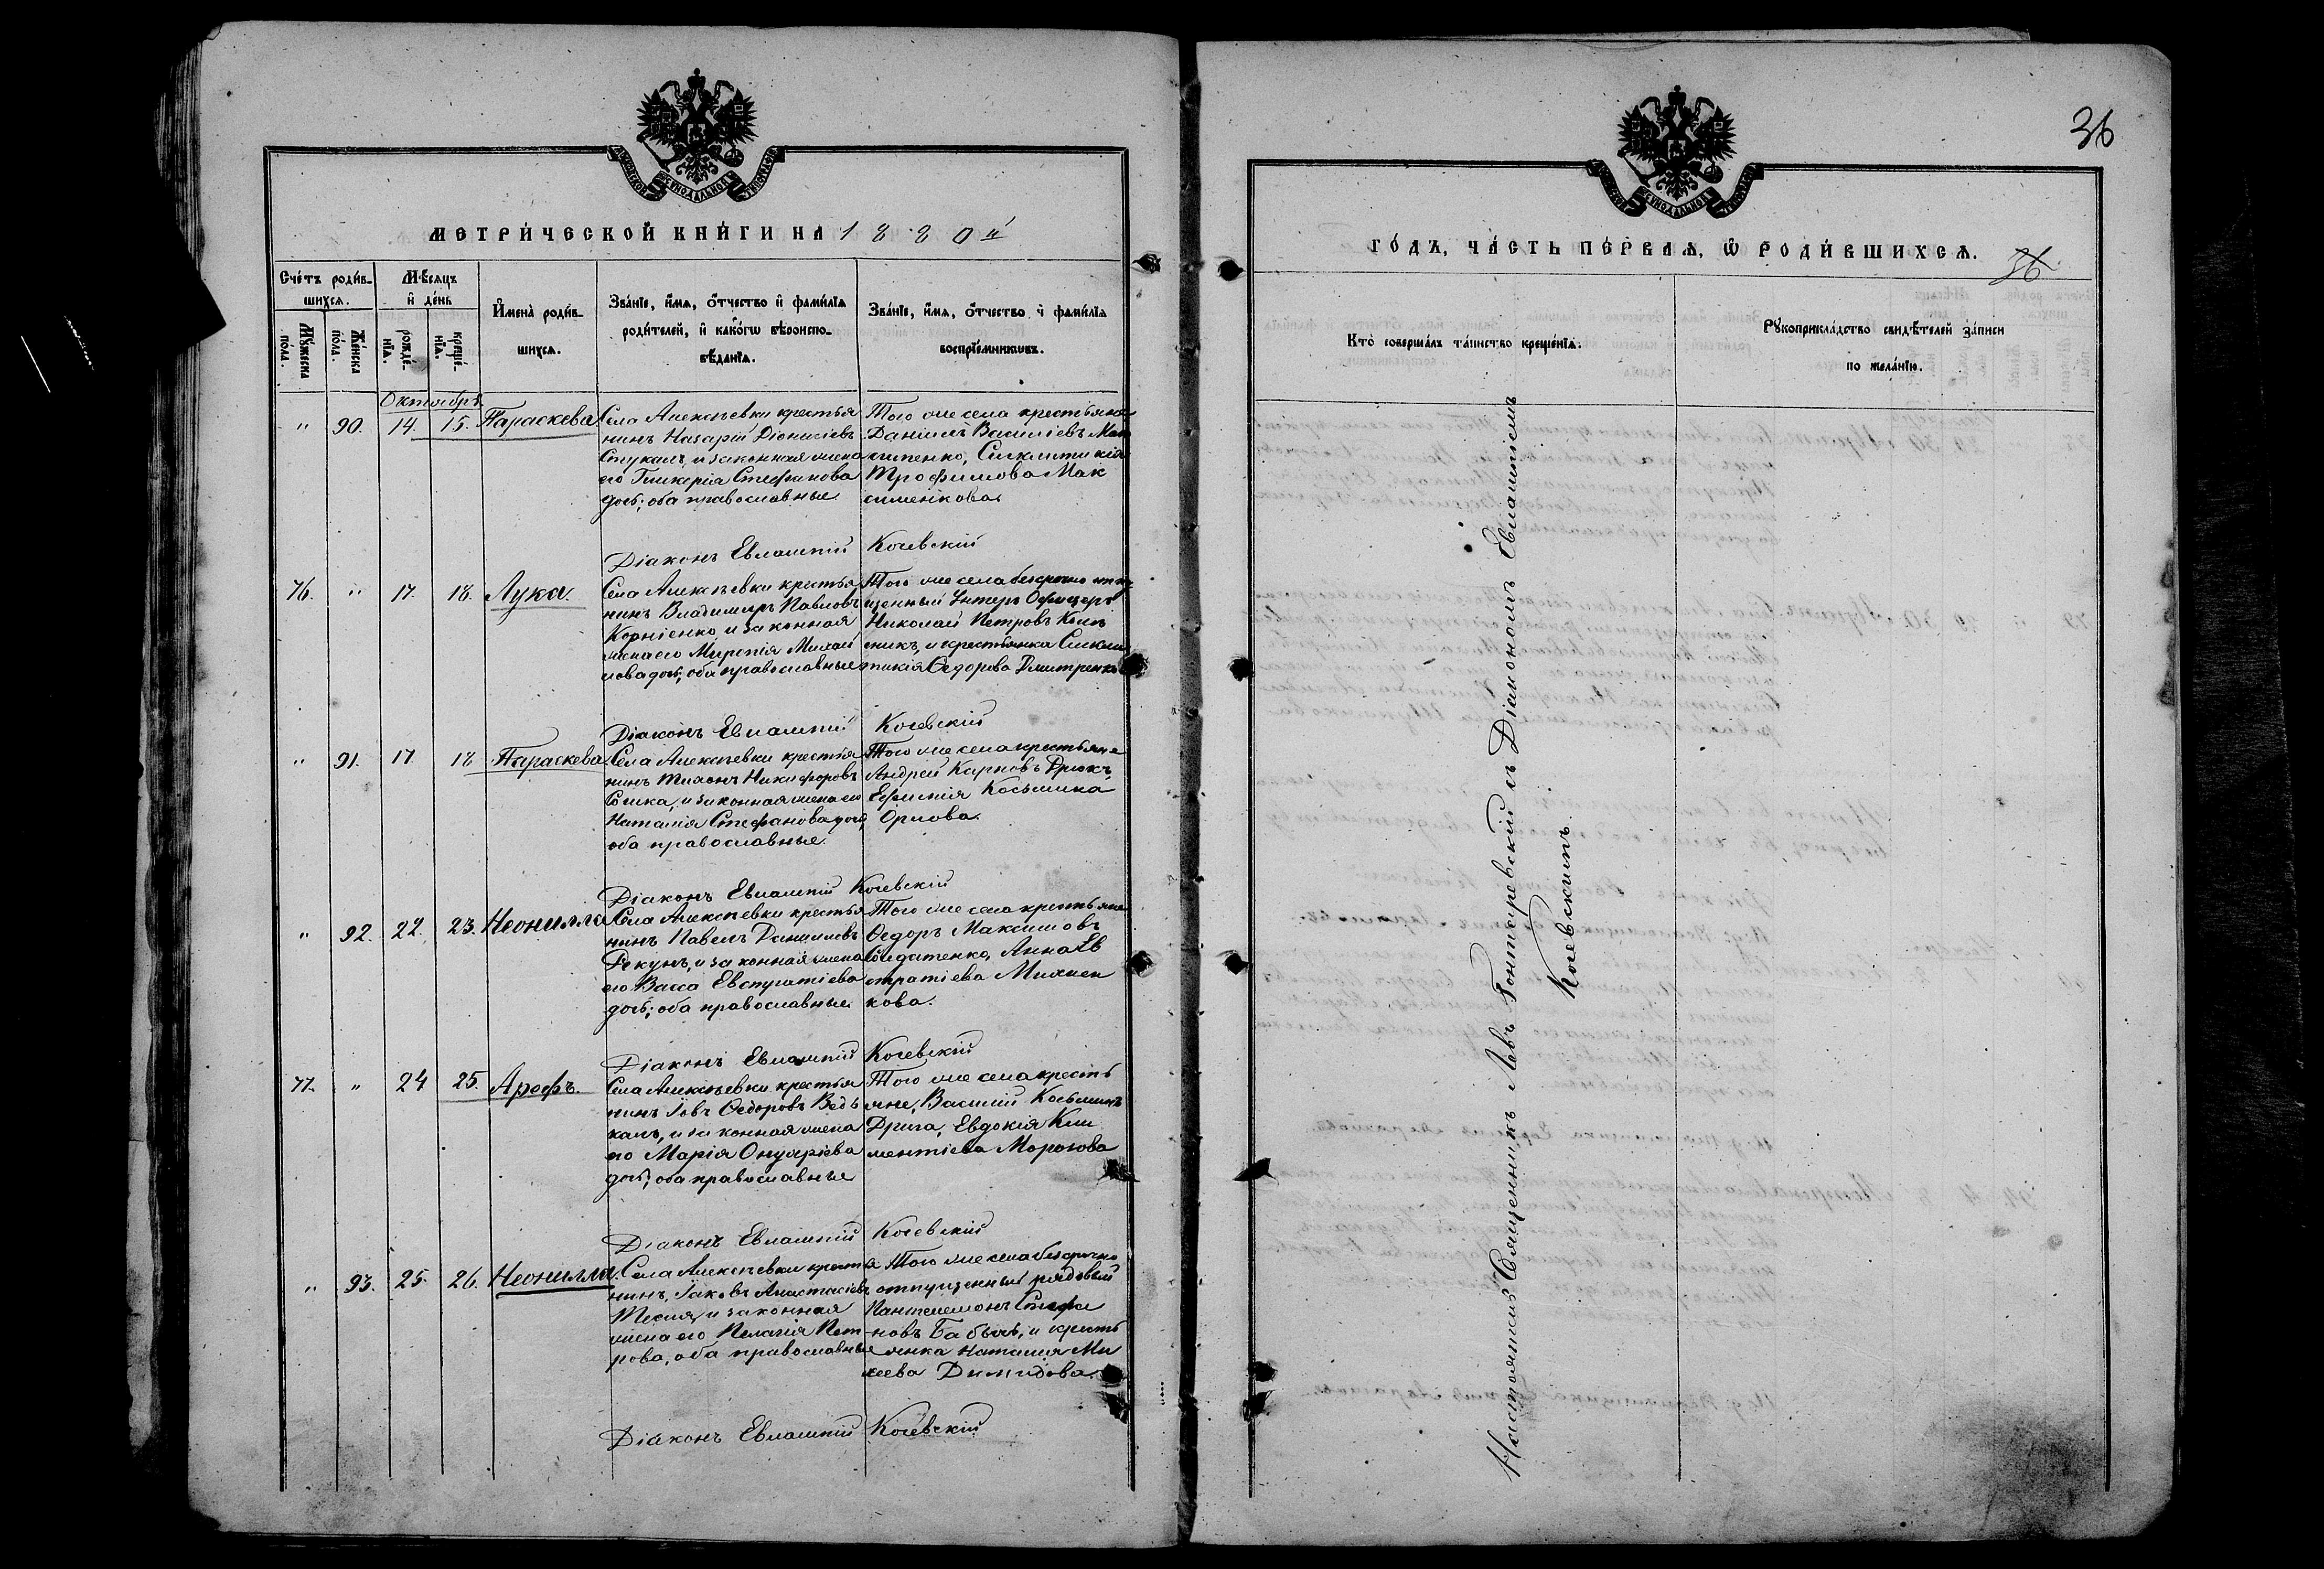 МОСКОВСКОЙ СѴНОДАЛЬНОЙ ТИПОГРАФІИ
МЕТРИ́ЧЕСКОЙ КНИ́ГИ НА 1880й
Сче́тъ роди́в-
шихся.
Мѣ́сяцъ
и҆ де́нь
И҆мена̀ роди́в-
шихся.
Зва́нїе, и҆́мя, ѻ҆́тчество и҆ фами́лїя
роди́телей, и҆ како́гѡ вѣроиспо-
вѣ́данїя.
Зва́нїе, и҆́мя, ѻ҆́тчество и҆ фами́лїя
воспрїе́мникѡвъ.
Мꙋ́жеска
по́ла.
Же́нска
по́ла.
рожде́-
нїя.
креще́-
нїя.
Октябрь
" 90. 14. 15. Параскева
Села Алексѣевки крестья
нинъ Назарій Діонисіевъ
Стукалъ, и законная жена
его Гликерія Стефанова
дочь; оба православные
Того же села крестьяне
Даніилъ Василіевъ
Синклитикія
Трофимова Мак
сименкова.
Діаконъ Евлампій Кочевскій
76. " 17. 18. Лука.
Села Алексѣевки крестья
нинъ Владимиръ Павловъ
Корніенко, и законная
жена его Миропія Михаи
лова дочь; оба православные
Того же села безсрочно отпу
щенный Унтеръ Офицеръ
Николай Петровъ
и крестьянка Синкли
тикія Ѳедорова Дмитренко
Діаконъ Евлампій Кочевскій
" 91. 17 18 Параскева
Села Алексѣевки крестья
нинъ Тихонъ Никифоровъ
Сошка, и законная жена его
Наталія Стефанова дочь,
оба православные.
Того же села крестьяне
Андрей Карповъ Дрюкъ,
Ефимія Косьмина
Орлова.
Діаконъ Евлампій Кочевскій
" 92. 22. 23. Неонилла
Села Алексѣевки крестья
нинъ Павелъ Даниловъ
Рекунъ, и законная жена
его Васса Евстратіева
дочь; оба православные
Того же села крестьяне
Ѳедоръ Максимовъ
Солдатенко, Анна Ев
стратіева Михнен
кова.
Діаконъ Евлампій Кочевскій
77. " 24 25. Арефъ.
Села Алексѣевки крестья
нинъ Іовъ Ѳедоровъ Водь
калъ, и законная жена
его Марія Онуфріева
дочь; оба православные
Того же села кресть
яне, Василій Косьминъ
Дрига, Евдокія Кли
ментіева Морозова
Діаконъ Евлампій Кочевскій
" 93. 25. 26. Неонилла.
Села Алексѣевки крестья
нинъ, Іаковъ Анастасіевъ
и законная
жена его Пелагія Пет-
рова, оба православные
Того же села безсрочно
отпущенный рядовый
Пантелеимонъ Стефа
новъ Бабычъ, и кресть
янка Наталия Ми
хеева Димидова.
Діаконъ Евлампій Кочевскій
36
МОСКОВСКОЙ СѴНОДАЛЬНОЙ ТИПОГРАФІИ
ГО́ДЪ, ЧА́СТЬ ПЕ́РВАЯ, Ѡ҆ РОДИ́ВШИХСЯ.
36
Кто̀ соверша́лъ та́инство креще́нїѧ.
Рꙋкоприкла́дство свидѣ́телей за́писи
по жела́нїю.
Настоятель Священникъ Левъ Гонтаревскій съ Діакономъ Евлампіемъ
Кочевскимъ.